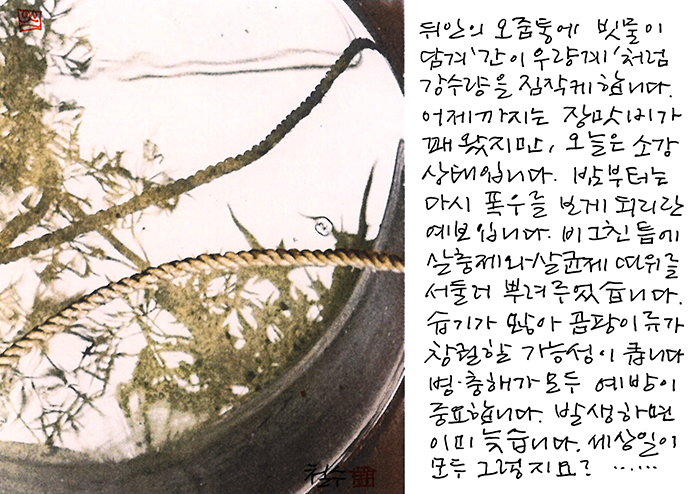 뒤안의 오줌통에 빗물이
담겨 '간이 우량계'처럼
강수량을 짐작케 합니다.
어제까지는 장맛비가
꽤 왔지만, 오늘은 소강
상태입니다. 밤부터는
다시 폭우를 보게 되리란
예보입니다. 비 그친 틈에
살충제와 살균제 따위를
서둘러 뿌려주었습니다.
습기가 많아 곰팡이류가
창궐할 가능성이 큽니다
병·충해가 모두 예방이
중요합니다. 발생하면
이미 늦습니다. 세상일이
모두 그렇지요? ······
철수